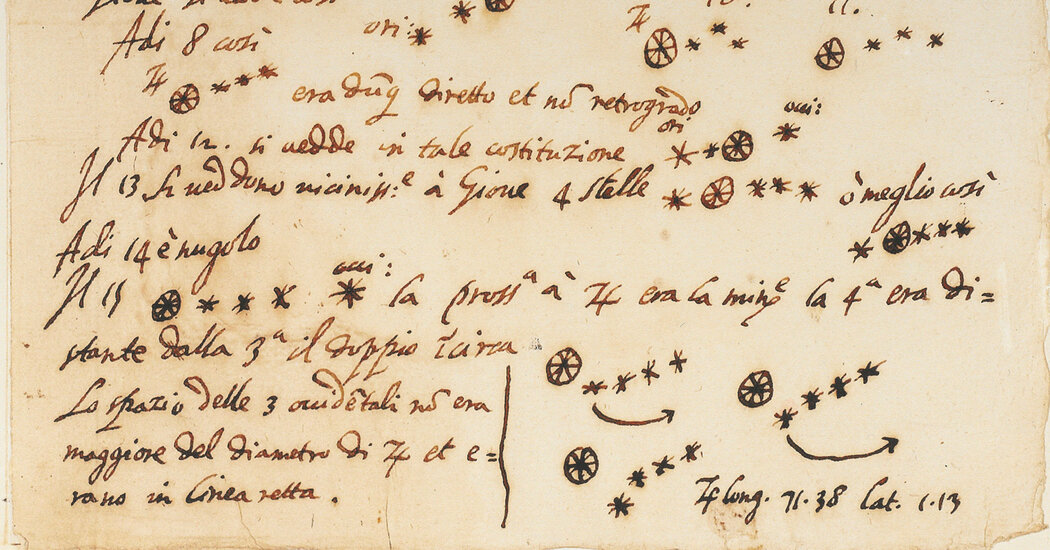 Adi 8 così
ori:
♃
11.
♃
era dũq diretto et nõ retrogrado
ori
occi:
Adi 12. si vedde in tale costituzione
Il 13 si veddono viciniss:ᵉ à Giove 4 stelle
ò meglio così
Adi 14 è nugolo
occi:
Il 15
la prossᵃ à ♃ era la minᵉ la 4ᵃ era di=
stante dalla 3ᵃ il doppio ĩcirca
Lo spazio delle 3 occidẽtali nõ era
maggiore del diametro di ♃ et e=
rano in linea retta.
♃ long. 71.38 lat. 1.13